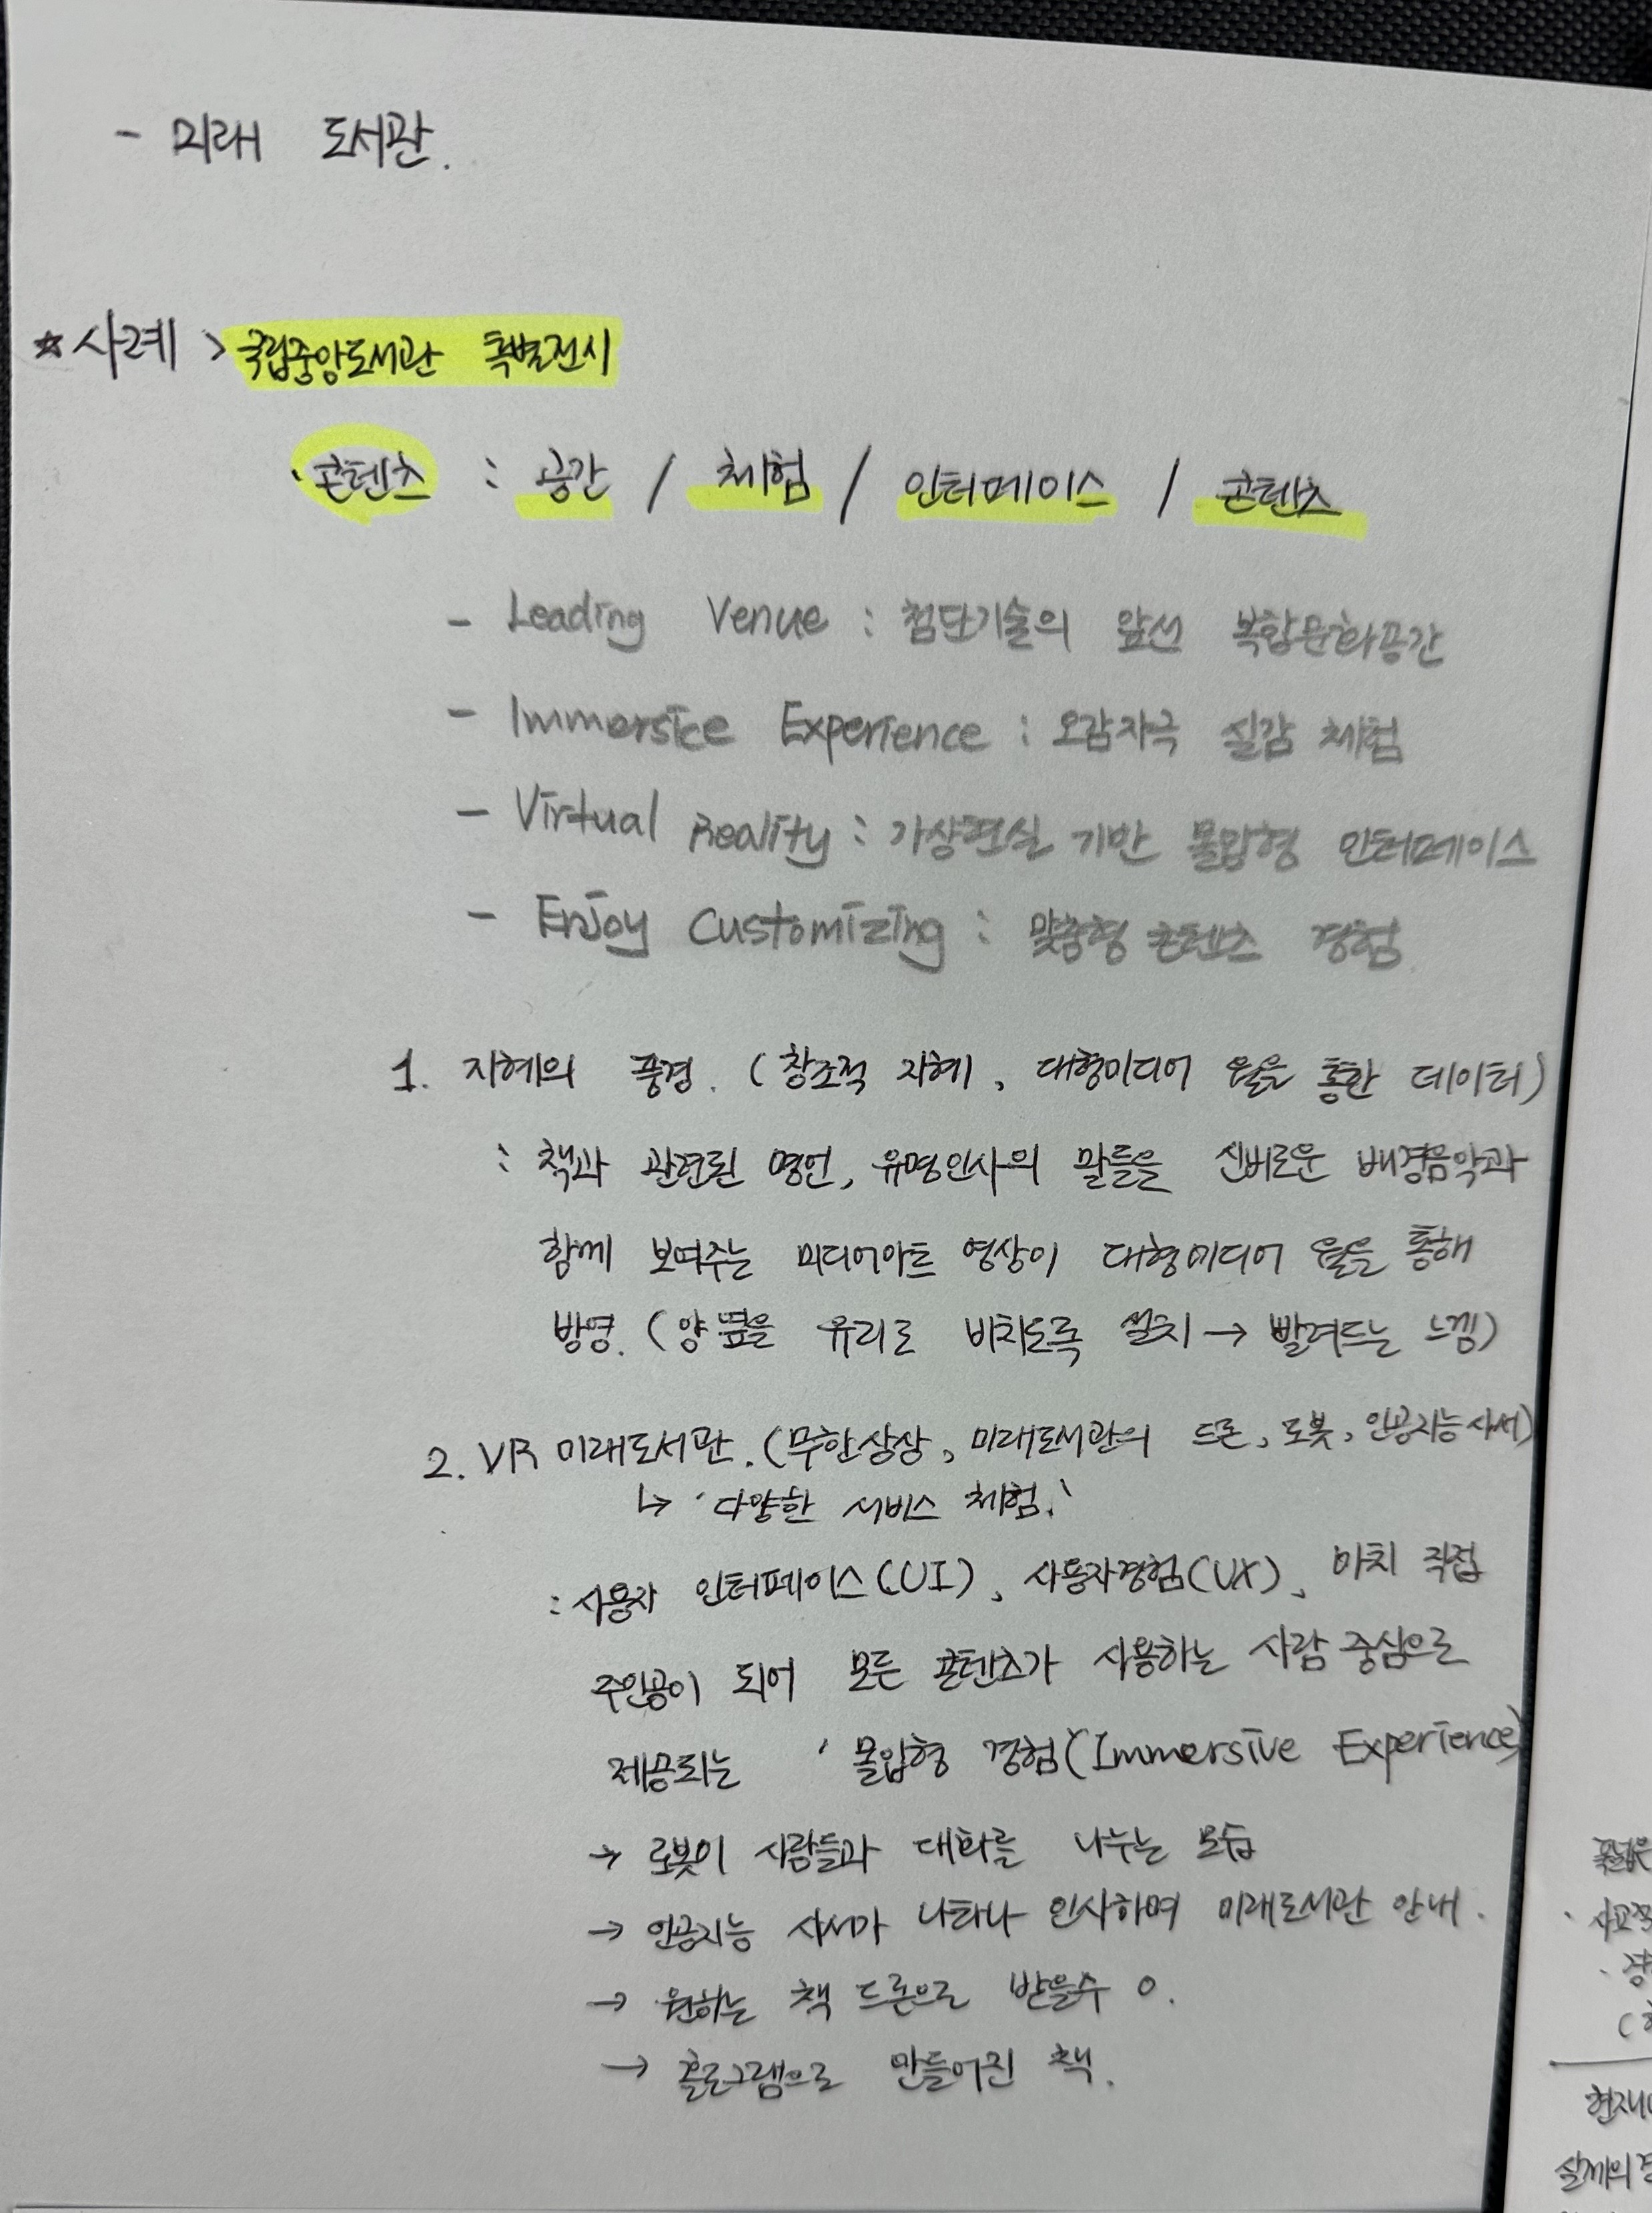 - 미래 도서관.
* 사례 > 국립중앙도서관 특별전시
· 콘텐츠 : 공간 / 체험 / 인터페이스 / 콘텐츠
- Leading Venue : 첨단기술의 앞선 복합문화공간
- Immersice Experience : 오감자극 실감 체험
- Virtual Reality : 가상현실 기반 몰입형 인터페이스
- Enjoy Customizing : 맞춤형 콘텐츠 경험
1. 지혜의 풍경. (창조적 지혜, 대형미디어 월을 통한 데이터)
: 책과 관련된 명언, 유명인사의 말들을 신비로운 배경음악과
함께 보여주는 미디어아트 영상이 대형미디어 월을 통해
방영. (양 옆을 유리로 비치도록 설치 → 빨려드는 느낌)
2. VR 미래도서관. (무한상상, 미래도서관의 드론, 로봇, 인공지능사서)
↳ '다양한 서비스 체험.'
: 사용자 인터페이스(UI), 사용자경험(UX), 마치 직접
주인공이 되어 모든 콘텐츠가 사용하는 사람 중심으로
제공되는 '몰입형 경험(Immersive Experience)
→ 로봇이 사람들과 대화를 나누는 모습
→ 인공지능 사서가 나타나 인사하며 미래도서관 안내.
→ 원하는 책 드론으로 받을수 o.
→ 홀로그램으로 만들어진 책.
실제의